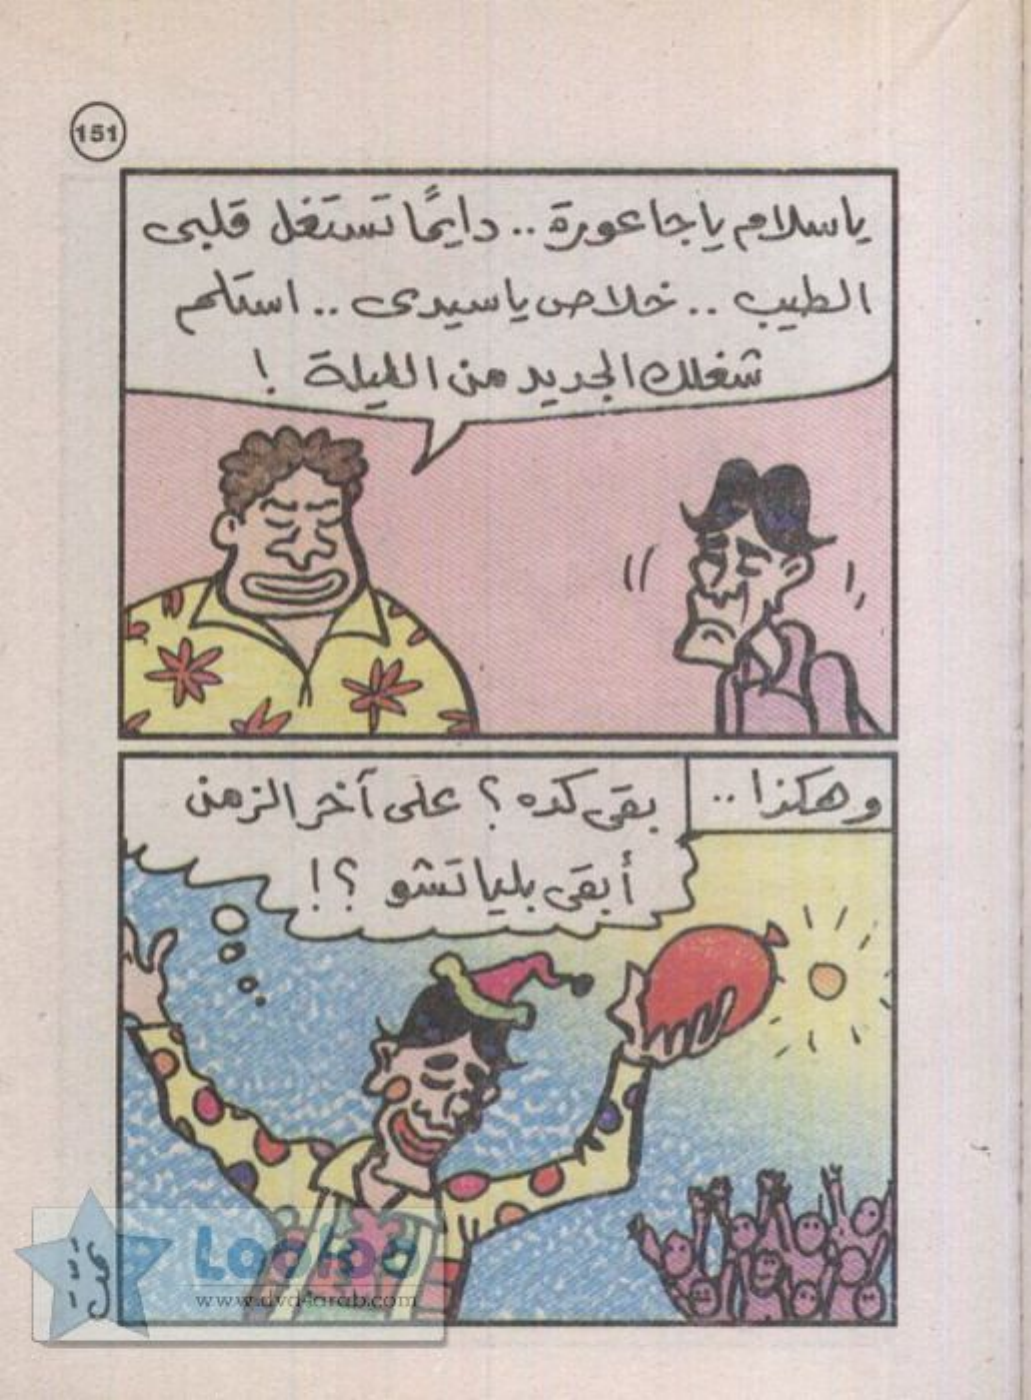 151
ياسلام ياجاعورة .. دايمًا تستغل قلبى
الطيب .. خلاص ياسيدى .. استلم
شغلك الجديد من الليلة !
وهكذا ..
بقى كده ؟ على آخر الزمن
أبقى بلياتشو ؟!
Looloo
www.dvd4arab.com